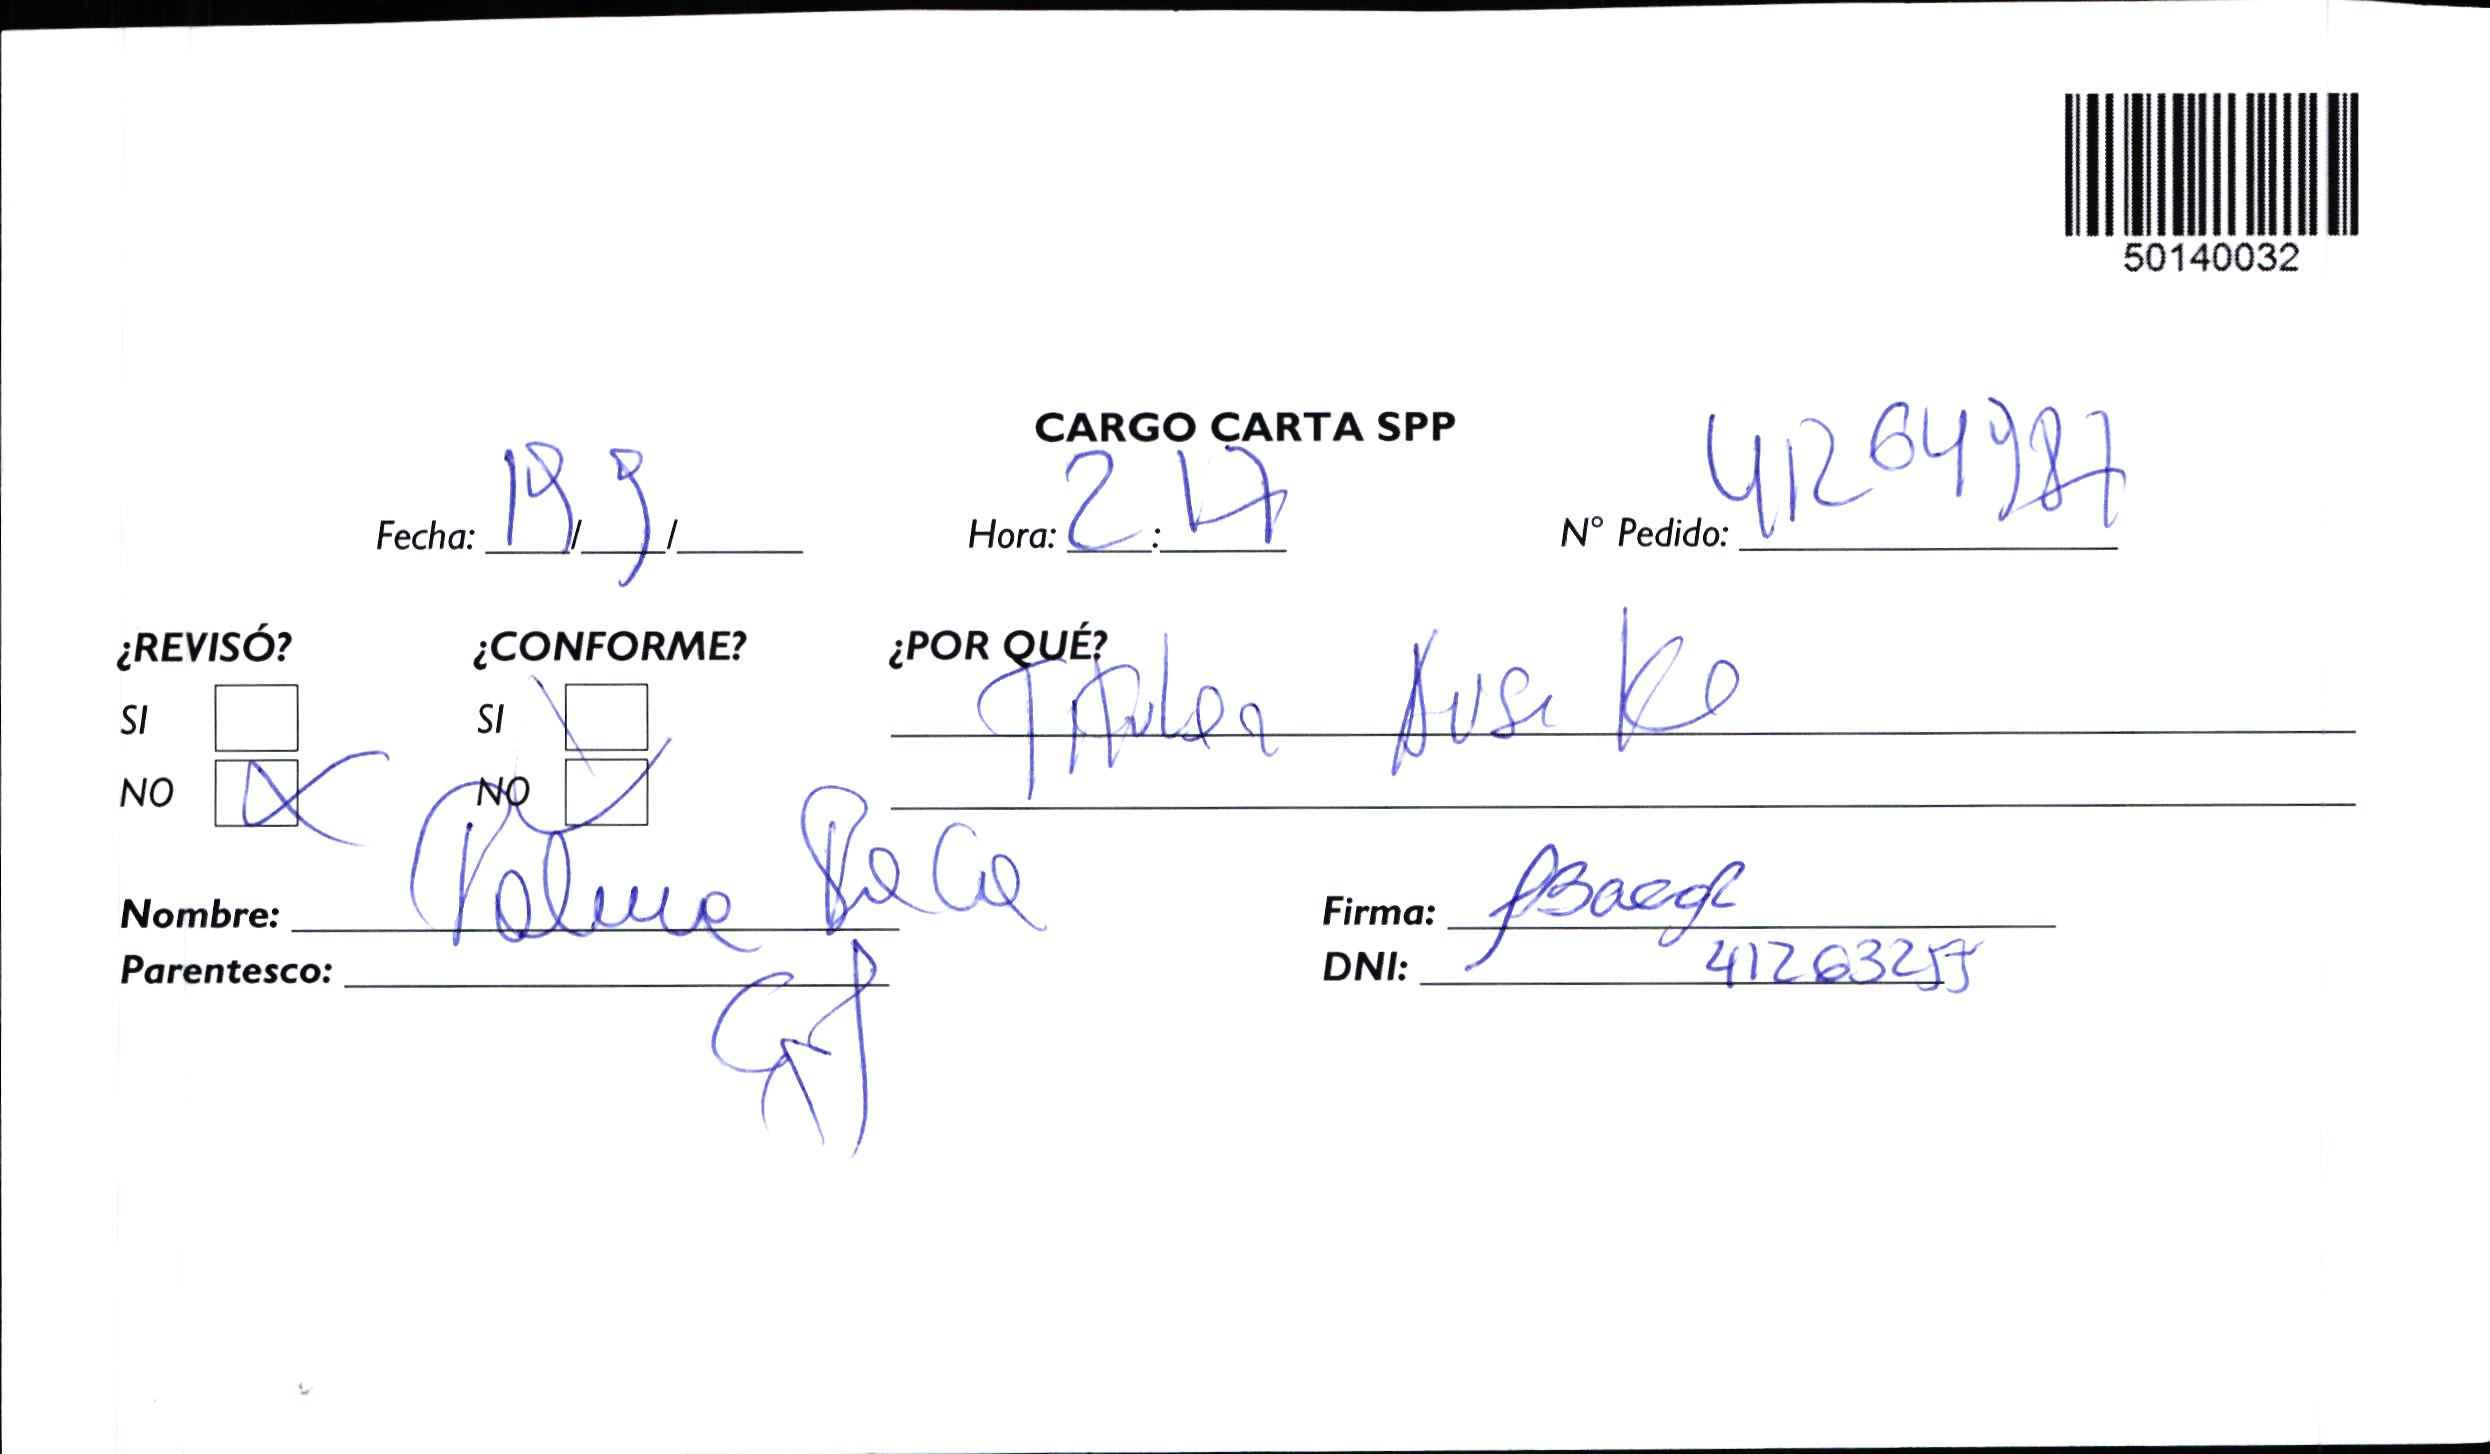 50140032
CARGO CARTA SPP
Fecha: 19/9/ Hora: 2:17 N° Pedido: 41264987
¿REVISÓ? ¿CONFORME? ¿POR QUÉ?
SI SI Titular
NO NO
Nombre: Paloma Baca Firma:
Parentesco: DNI: 41263257